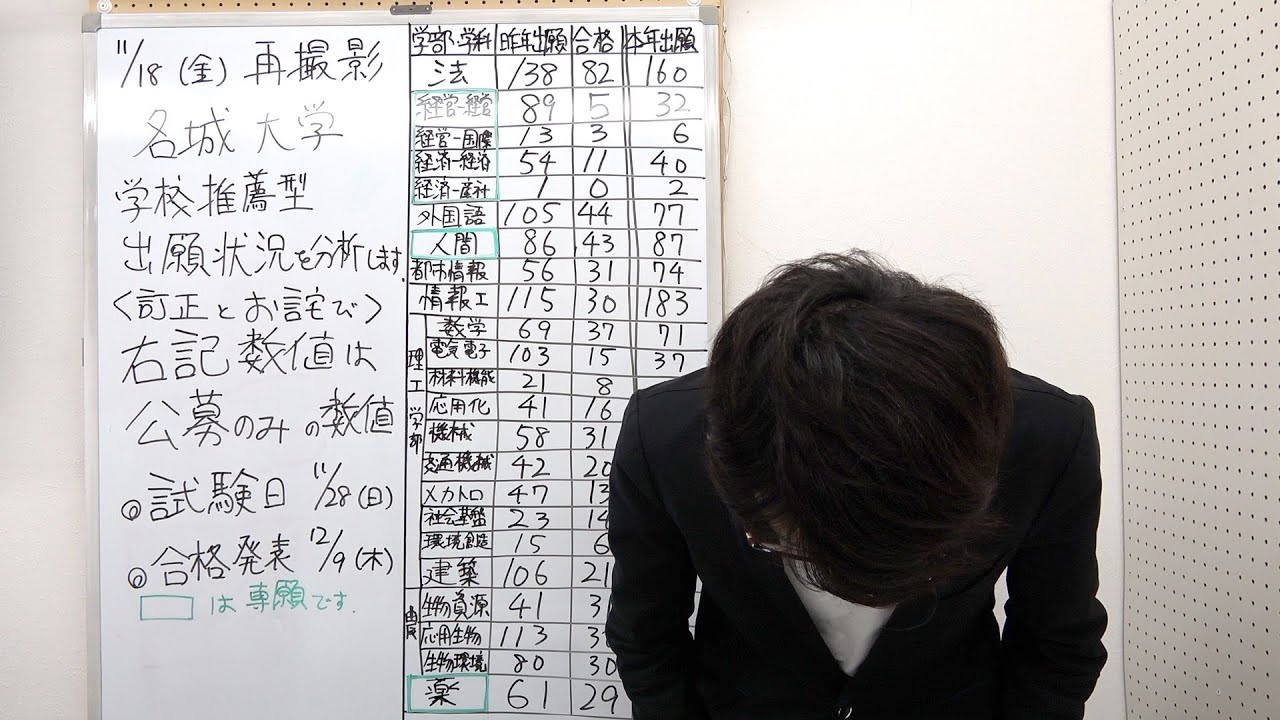 11/18(金)再撮影
名城大学
学校推薦型
出願状況を分析します。
〈訂正とお詫び〉
右記数値は
公募のみの数値
◎試験日 11/28(日)
◎合格発表 12/9(木)
は専願です.
学部・学科 昨年出願 合格 本年出願
法 138 82 160
経営-経営 89 5 32
経営-国際 13 3 6
経済-経済 54 11 40
経済-産社 1 0 2
外国語 105 44 77
人間 86 43 87
都市情報 56 31 74
情報工 115 30 183
理工学部
数学 69 37 71
電気電子 103 15 37
材料機能 21 8
応用化 41 16
機械 58 31
交通機械 42 20
メカトロ 47 13
社会基盤 23 14
環境創造 15 6
建築 106 21
農
生物資源 41
応用生物 113
生物環境 80 30
薬 61 29